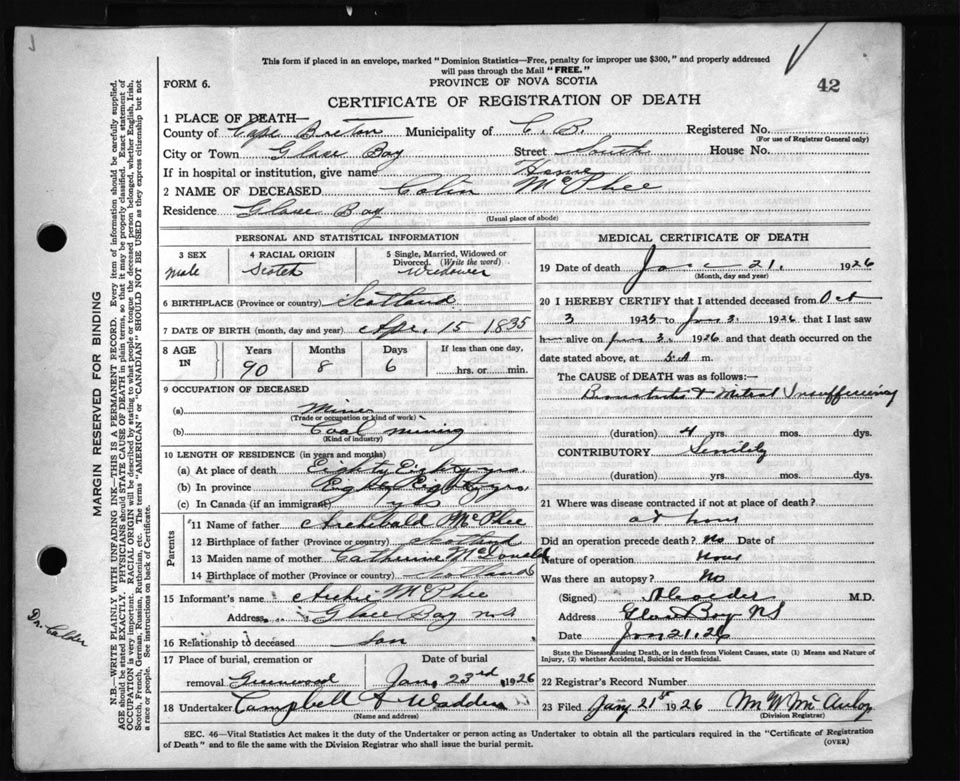 This form if placed in an envelope, marked "Dominion Statistics—Free, penalty for improper use $300," and properly addressed
will pass through the Mail "FREE."
FORM 6.
PROVINCE OF NOVA SCOTIA
42
CERTIFICATE OF REGISTRATION OF DEATH
1 PLACE OF DEATH—
County of Cape Breton Municipality of C. B. Registered No.
(For use of Registrar General only)
City or Town Glace Bay Street South House No.
If in hospital or institution, give name Home
2 NAME OF DECEASED Colin McPhee
Residence Glace Bay
(Usual place of abode)
PERSONAL AND STATISTICAL INFORMATION
3 SEX
male
4 RACIAL ORIGIN
Scotch
5 Single, Married, Widowed or
Divorced. (Write the word)
Widower
6 BIRTHPLACE (Province or country) Scotland
7 DATE OF BIRTH (month, day and year) Apr. 15 1835
8 AGE IN
Years Months Days If less than one day,
90 8 6 hrs. or min.
9 OCCUPATION OF DECEASED
(a) Miner
(Trade or occupation or kind of work)
(b) Coal mining
(Kind of industry)
10 LENGTH OF RESIDENCE (in years and months)
(a) At place of death Eighty Eight yrs.
(b) In province Eighty Eight yrs.
(c) In Canada (if an immigrant)
Parents
11 Name of father Archibald McPhee
12 Birthplace of father (Province or country) Scotland
13 Maiden name of mother Catherine McDonald
14 Birthplace of mother (Province or country) Scotland
15 Informant's name Archie McPhee
Address Glace Bay NS
16 Relationship to deceased son
17 Place of burial, cremation or
removal Greenwood
Date of burial
Jan. 23rd 1926
18 Undertaker Campbell &
(Name and address)
MEDICAL CERTIFICATE OF DEATH
19 Date of death Jan 21. 1926
(Month, day and year)
20 I HEREBY CERTIFY that I attended deceased from Oct
3 1925 to Jan 3. 1926 that I last saw
h alive on Jan 3. 1926 and that death occurred on the
date stated above, at 5 A m.
The CAUSE OF DEATH was as follows:—
& Mitral Insufficiency
(duration) 4 yrs. mos. dys.
CONTRIBUTORY Senility
(duration) yrs. mos. dys.
21 Where was disease contracted if not at place of death?
at home
Did an operation precede death? No Date
Nature of operation None
Was there an autopsy? No
(Signed) M.D.
Address Glace Bay NS
Date Jan 21, 26
State the Disease causing Death, or in death from Violent Causes, state (1) Means and Nature of
Injury, (2) whether Accidental, Suicidal or Homicidal.
22 Registrar's Record Number
23 Filed Jany 21st 1926
(Division Registrar)
SEC. 46—Vital Statistics Act makes it duty of the Undertaker or person acting as Undertaker to obtain all the particulars required in the "Certificate of Registration
of Death" and to file the same with the Division Registrar who shall issue the burial permit.
(OVER)
MARGIN RESERVED FOR BINDING
N.B.—WRITE PLAINLY WITH UNFADING INK—THIS IS A PERMANENT RECORD. Every item of information should be carefully supplied.
AGE should be stated EXACTLY. PHYSICIANS should STATE CAUSE OF DEATH in plain terms, so that it may be properly classified. Exact statement of
OCCUPATION is very important. RACIAL ORIGIN will be described by stating to what people or tongue the deceased person belonged, whether English, Irish,
Scotch, French, German, Russian, Ruthenian, etc. The terms "AMERICAN" or "CANADIAN" SHOULD NOT BE USED as they express citizenship but not
a race or people. See instructions on back of Certificate.
Dr. Calder